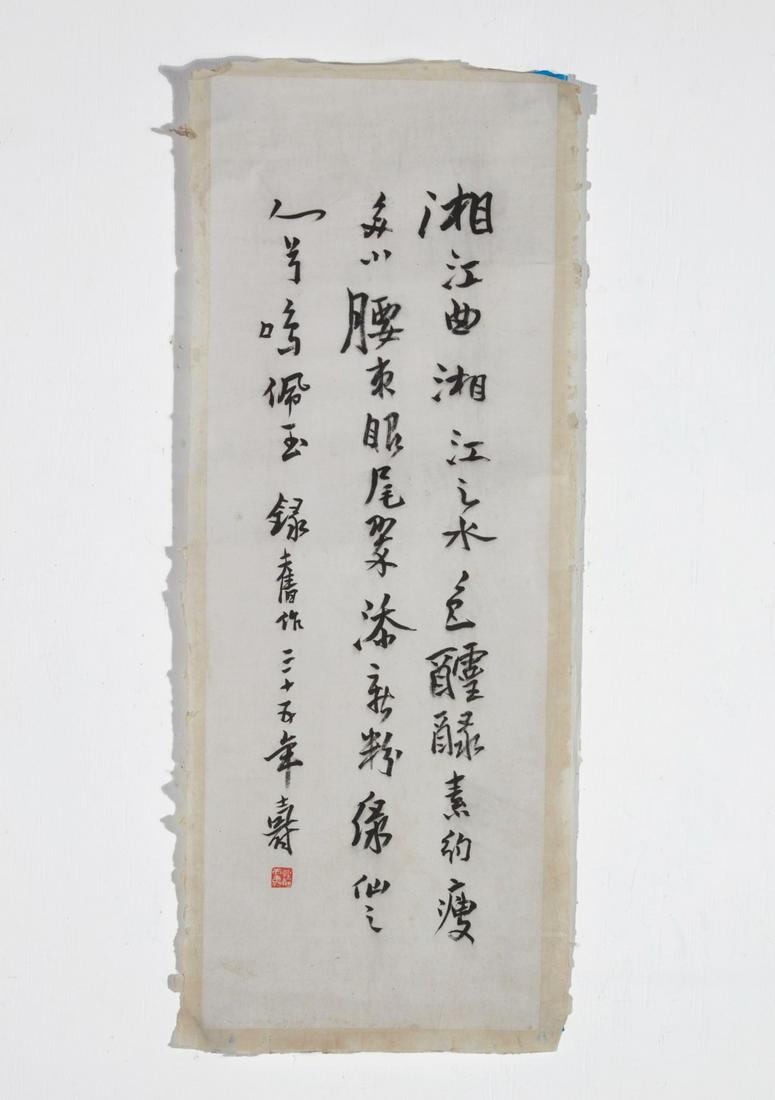 湘江曲湘江之水色醽醁素約瘦
多小腰束眼尾翠添新粉綠仙之
人兮鳴佩玉 錄舊作二十五年壽